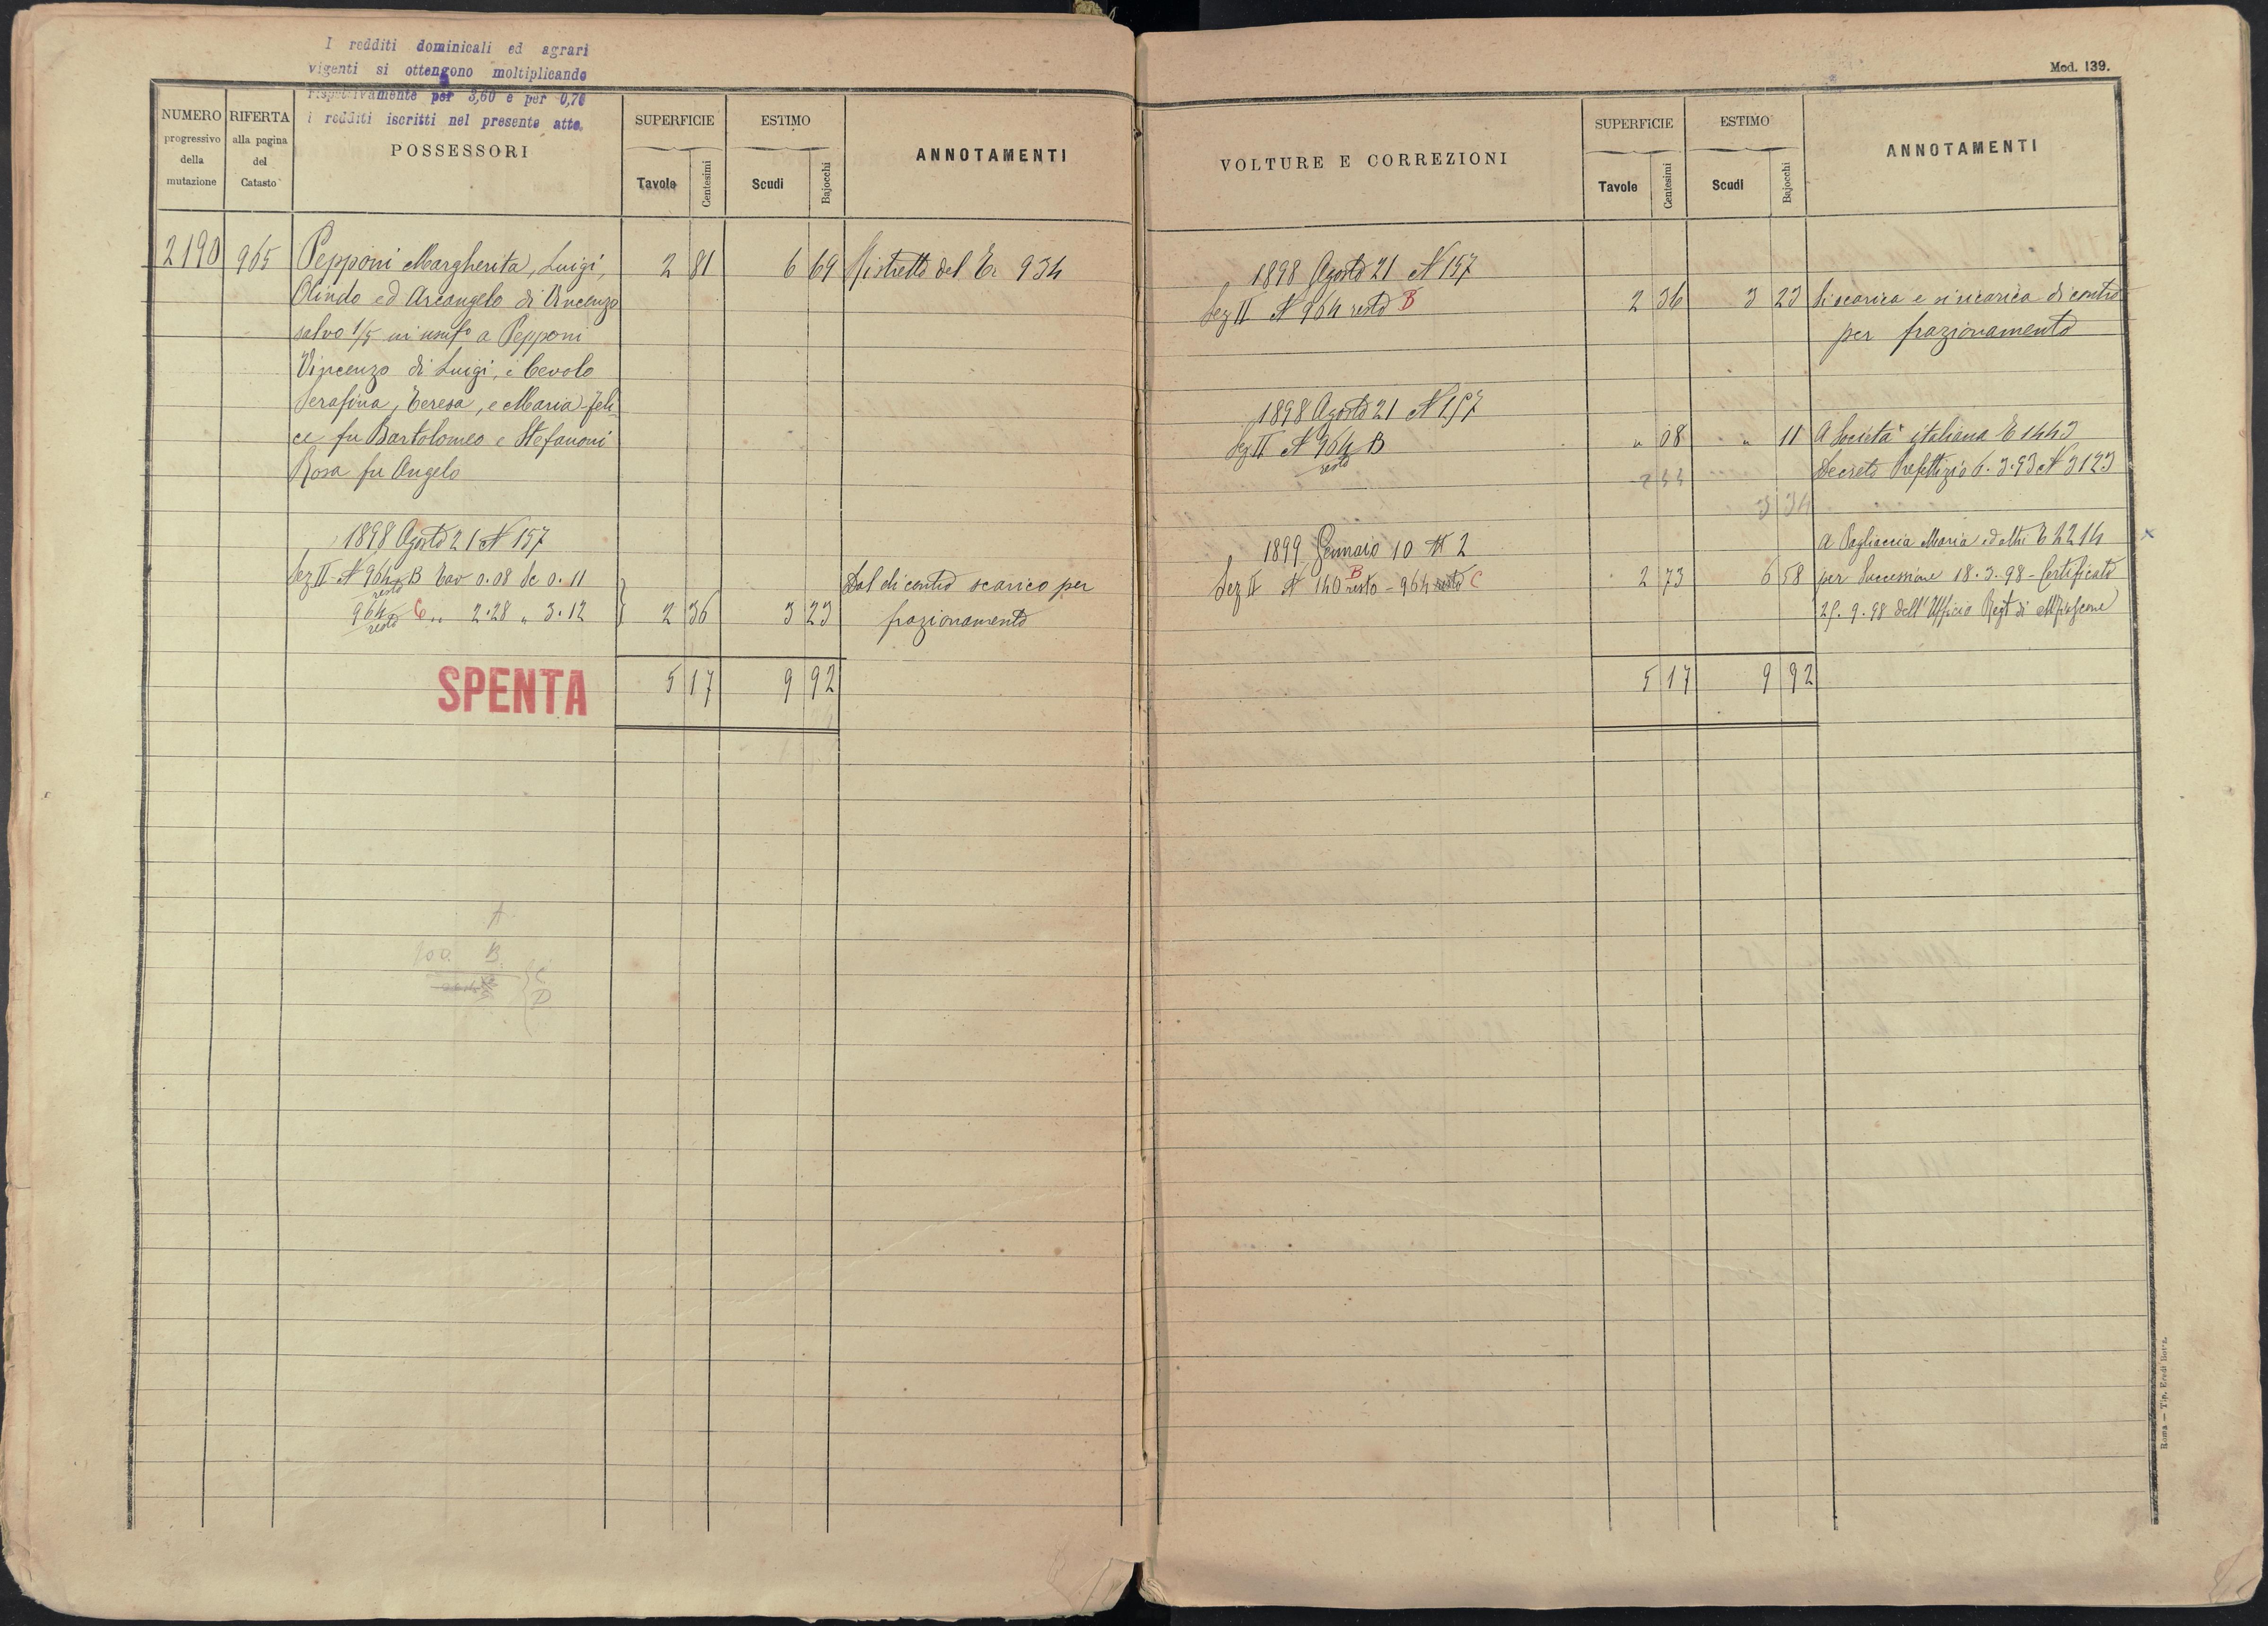 I redditi dominicali ed agrari
vigenti si ottengono moltiplicando
rispettivamente per 3,60 e per 0,70
i redditi iscritti nel presente atto.
NUMERO
progressivo
della
mutazione
RIFERTA
alla pagina
del
Catasto
POSSESSORI
SUPERFICIE
Tavole
Centesimi
ESTIMO
Scudi
Bajocchi
ANNOTAMENTI
2190 965 Pepponi Margherita, Luigi, 2 81 6 69 Ristretto del Tr 934
Olindo ed Arcangelo di Vincenzo
salvo 1/5 in usuf.o a Pepponi
Vincenzo di Luigi, e Cevolo
Serafina, Teresa, e Maria Feli-
ce fu Bartolomeo e Stefanoni
Rosa fu Angelo
1898 Agosto 21 N 157
Sez II N 964 resto B Tav 0.08 Sc 0.11 Dal di contro scarico per
964 resto C „ 2.28 „ 3.12 2 36 3 23 frazionamento
SPENTA 5 17 9 92
A
B.
C
D
Mod. 139.
VOLTURE E CORREZIONI
SUPERFICIE
Tavole
Centesimi
ESTIMO
Scudi
Bajocchi
ANNOTAMENTI
1898 Agosto 21 N 157
Sez II N 964 resto B 2 36 3 23 Si scarica e si ricarica di contro
per frazionamento
1898 Agosto 21 N 157
Sez II N 964 resto B „ 08 „ 11 A Società italiana T 1443
2 44 Decreto Prefettizio 6.3.93 N 3123
3 34
1899 Gennaio 10 N 2 A Pagliaccia Maria ed altri T 4214
Sez II N 140 B resto - 964 resto C 2 73 6 58 per Successione 18.3.98 - Certificato
25.9.98 dell'Ufficio Reg.t di
5 17 9 92
Roma — Tip. Eredi Botta.